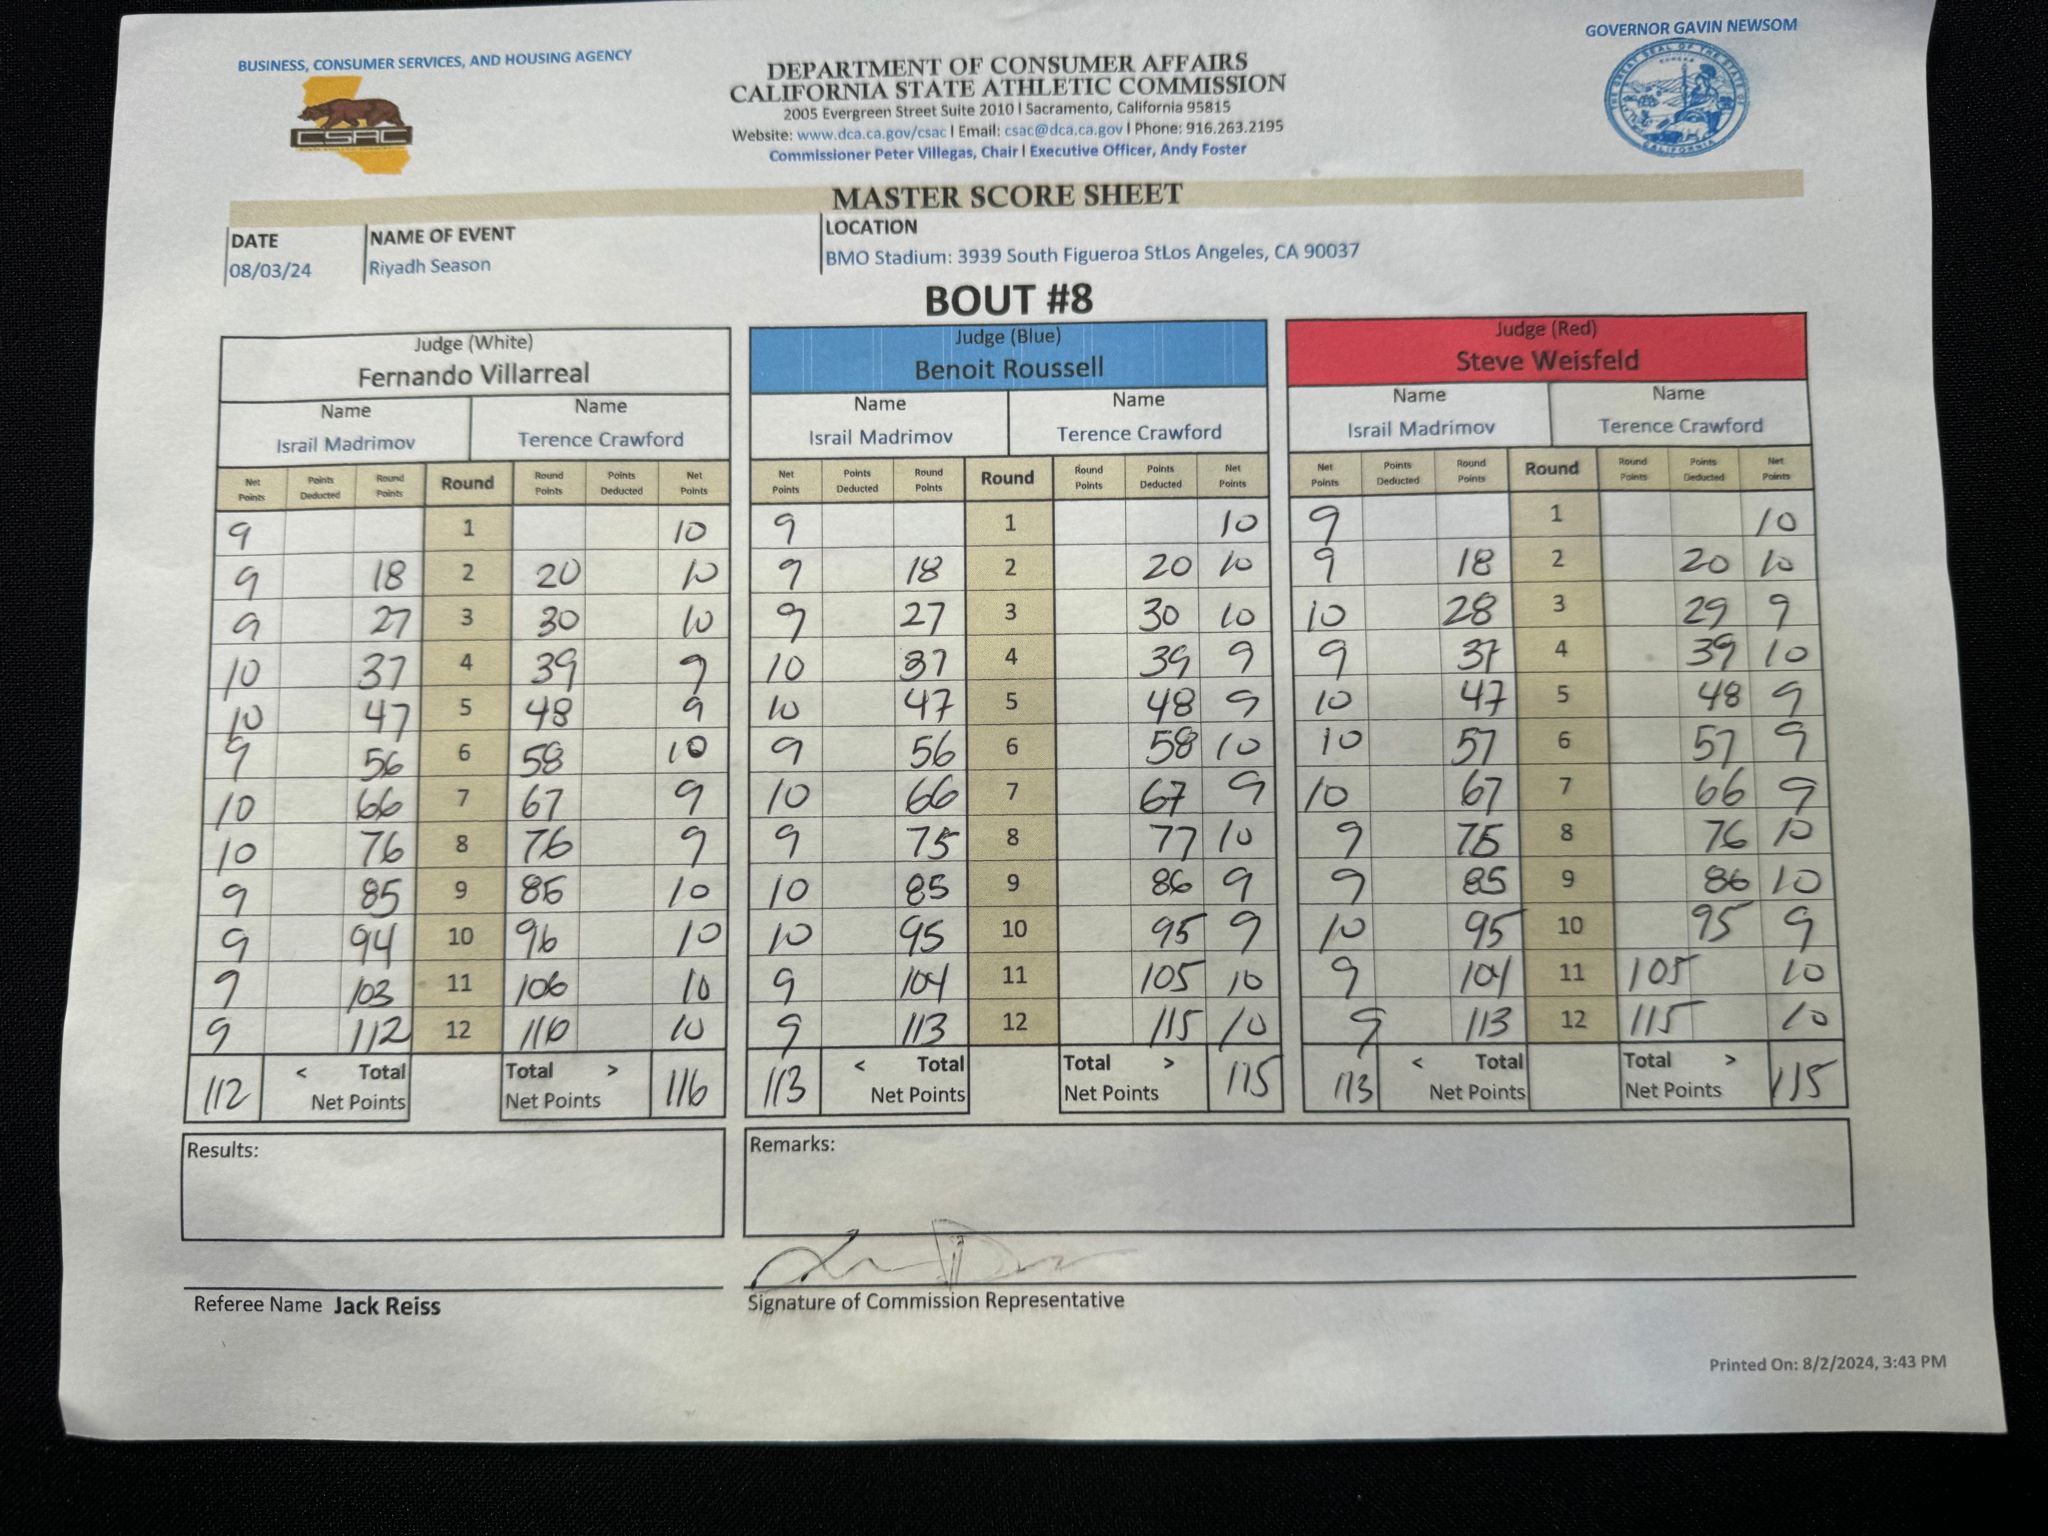 BUSINESS, CONSUMER SERVICES, AND HOUSING AGENCY
CSAC
DEPARTMENT OF CONSUMER AFFAIRS
CALIFORNIA STATE ATHLETIC COMMISSION
2005 Evergreen Street Suite 2010 | Sacramento, California 95815
Website: www.dca.ca.gov/csac | Email: csac@dca.ca.gov | Phone: 916.263.2195
Commissioner Peter Villegas, Chair | Executive Officer, Andy Foster
GOVERNOR GAVIN NEWSOM
THE GREAT SEAL OF THE STATE OF CALIFORNIA
EUREKA
MASTER SCORE SHEET
DATE NAME OF EVENT LOCATION
08/03/24 Riyadh Season BMO Stadium: 3939 South Figueroa StLos Angeles, CA 90037
BOUT #8
Judge (White) Judge (Blue) Judge (Red)
Fernando Villarreal Benoit Roussell Steve Weisfeld
Name Name Name Name Name Name
Israil Madrimov Terence Crawford Israil Madrimov Terence Crawford Israil Madrimov Terence Crawford
Net Points Points Deducted Round Points Round Round Points Points Deducted Net Points Net Points Points Deducted Round Points Round Round Points Points Deducted Net Points Net Points Points Deducted Round Points Round Round Points Points Deducted Net Points
9 1 10 9 1 10 9 1 10
9 18 2 20 10 9 18 2 20 10 9 18 2 20 10
9 27 3 30 10 9 27 3 30 10 10 28 3 29 9
10 37 4 39 9 10 37 4 39 9 9 37 4 39 10
10 47 5 48 9 10 47 5 48 9 10 47 5 48 9
9 56 6 58 10 9 56 6 58 10 10 57 6 57 9
10 66 7 67 9 10 66 7 67 9 10 67 7 66 9
10 76 8 76 9 9 75 8 77 10 9 76 8 76 10
9 85 9 86 10 10 85 9 86 9 9 85 9 86 10
9 94 10 96 10 10 95 10 95 9 10 95 10 95 9
9 103 11 106 10 9 104 11 105 10 9 104 11 105 10
9 112 12 116 10 9 113 12 115 10 9 113 12 115 10
112 < Total Net Points Total > Net Points 116 113 < Total Net Points Total > Net Points 115 113 < Total Net Points Total > Net Points 115
Results: Remarks:
Referee Name Jack Reiss Signature of Commission Representative
Printed On: 8/2/2024, 3:43 PM